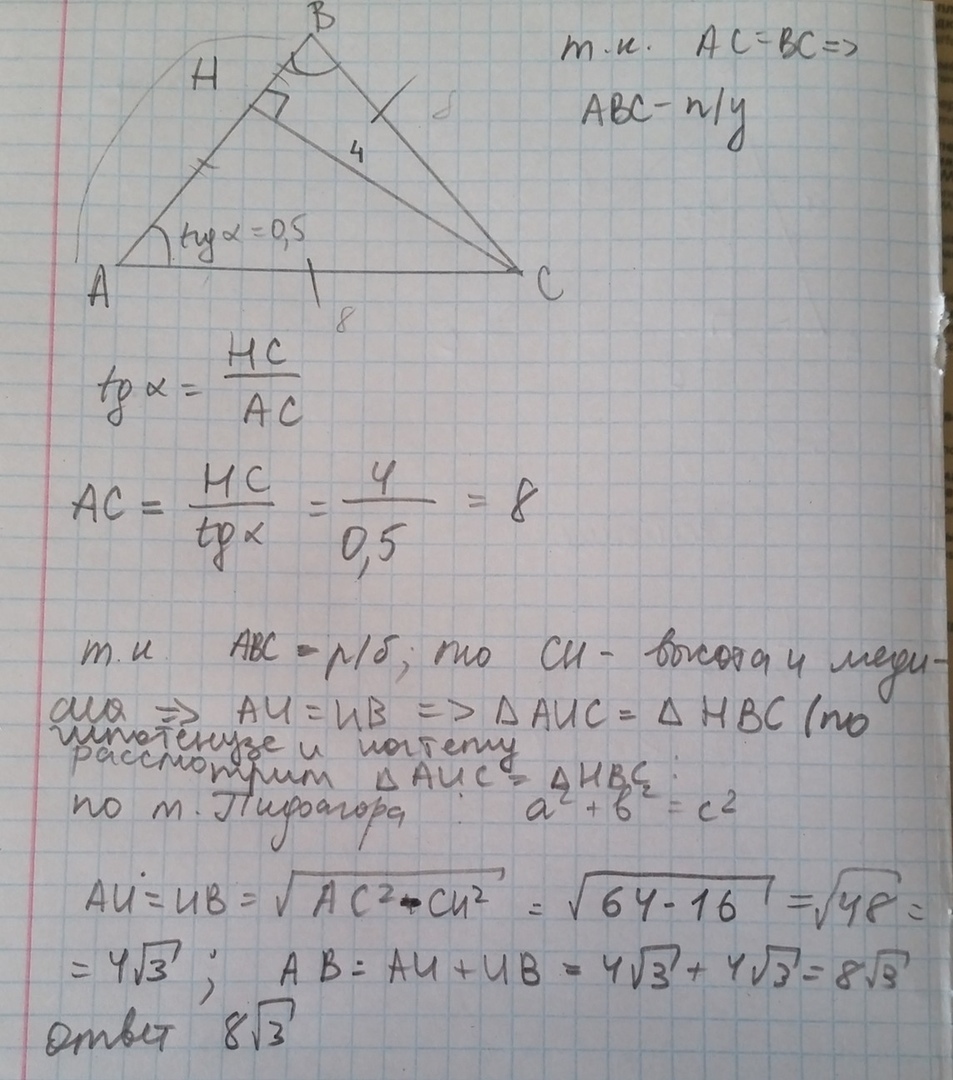 B
т.к. AC=BC=>
H
ABC - п/у
4
8
tg α = 0,5
A
C
8
tg α = HC / AC
AC = HC / tg α = 4 / 0,5 = 8
т.к ABC - р/б; то CH - высота и меди-
ана => AH = HB => Δ AHC = Δ HBC (по
гипотенузе и катету
рассмотрим Δ AHC = Δ HBC:
по т. Пифагора : a² + b² = c²
AH = HB = √AC² - CH² = √64-16 = √48 =
= 4√3 ; AB = AH + HB = 4√3 + 4√3 = 8√3
ответ 8√3